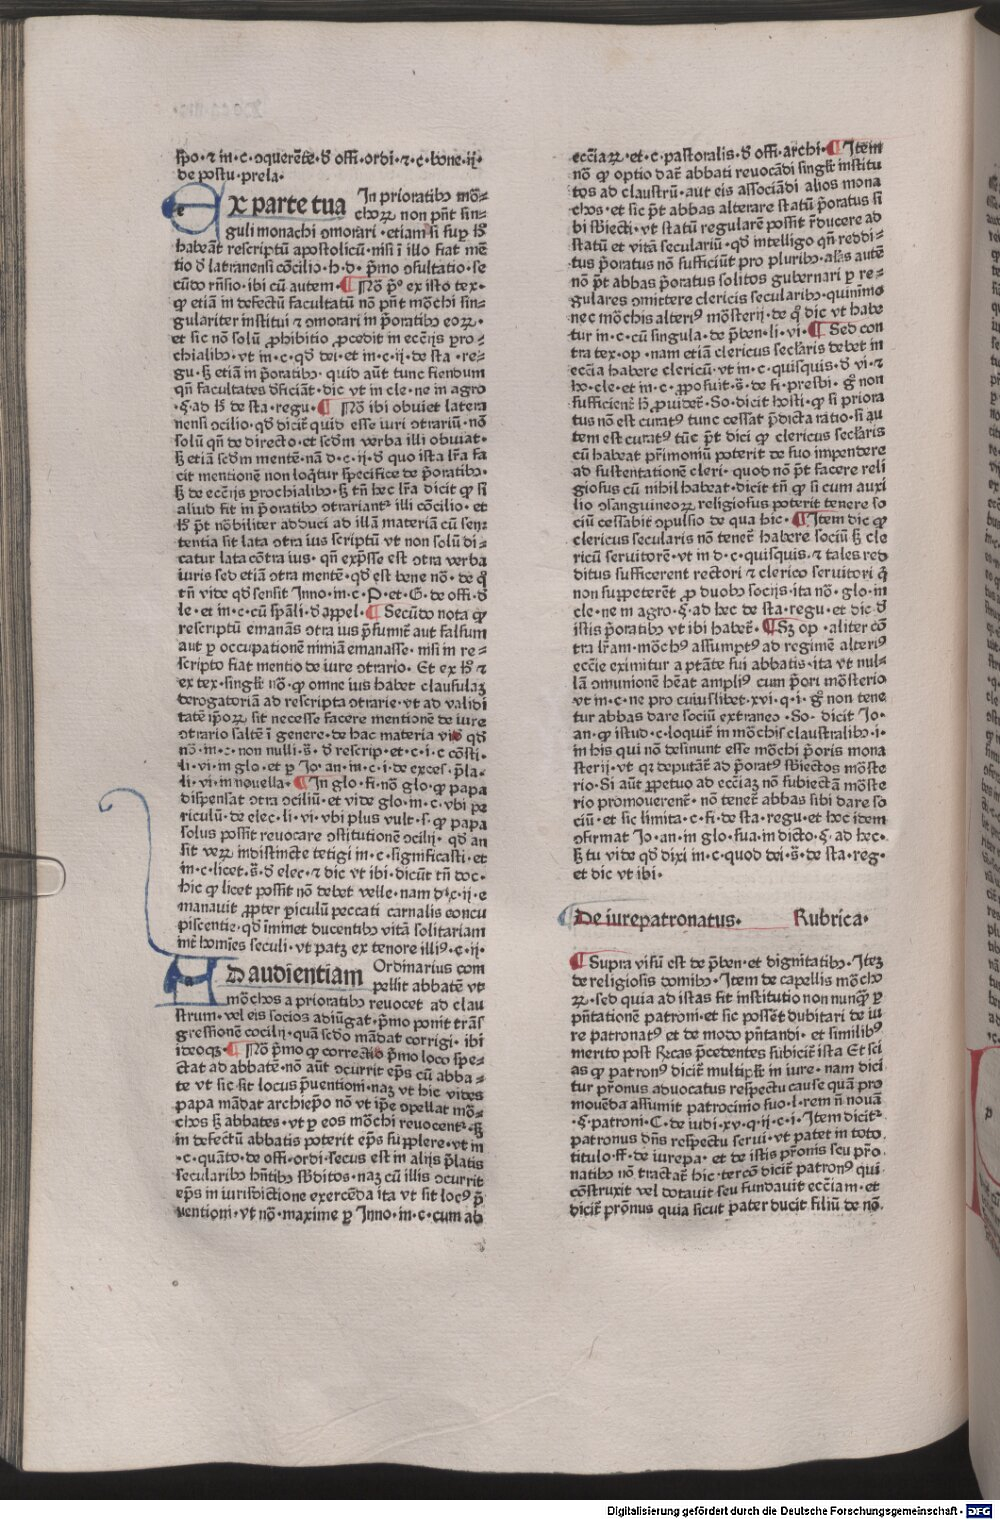 spo·⁊ in·c·ꝯquerẽte·ð offi·ordi·⁊·c·bone·ij·
de postu·prela·
Ex parte tua In prioratibꝫ mõ⸗
choꝝ non pñt sin⸗
guli monachi ꝯmorari·etiam si suꝑ hͦ
habeãt rescriptũ apostolicũ·nisi ĩ illo fiat mẽ
tio ð latranensi cõcilio·h·d· pͥmo ꝯsultatio·se
cũdo rñsio·ibi cũ autem· ¶ Nõ pͦ ex isto tex·
ꝙ etiã in defectũ facultatũ nõ pñt mõchi sin⸗
gulariter institui ⁊ ꝯmorari in p̃oratibꝫ eoꝝ·
et sic nõ solũ ꝓhibitio ꝓcedit in ecc̃ijs ꝑro⸗
chialibꝫ·vt in·c·qð dei·et in·c·ij·de sta·re⸗
gu·sꝫ etiã in p̃oratibꝫ· quid aũt tunc fiendum
qñ facultates ðficiãt·dic vt in cle·ne in agro
·§·ad hͦ de sta·regu· ¶ Nõ ibi obuiet latera
nensi ꝯcilio·qð dicit̃ quid esse iuri ꝯtrariũ·nõ
solũ qñ de directo·et scðm verba illi obuiat·
sꝫ etiã scðm mentẽ·nã d·c·ij·ð quo ista lr̃a fa
cit mentionẽ non loq̃tur specifice de p̃oratibꝫ·
sꝫ de ecc̃ijs ꝑrochialibꝫ·sꝫ tñ hec lr̃a dicit ꝙ si
aliud fit in p̃oratibꝫ ꝯtrariant᷑ illi cõcilio·et
hͦ p̃t nõbiliter adduci ad illã materiã cũ sen⸗
tentia sit lata ꝯtra ius scriptũ vt non solũ di⸗
catur lata cõtra ius· qñ exp̃sse est ꝯtra verba
iuris sed etiã ꝯtra mentẽ·qð est bene nõ·de qͦ
tñ vide qð sensit Inno·in·c·P·et·G·de offi·ð
le·et in·c·cũ sp̃ali·ð appel· ¶ Secũdo nota ꝙ
rescriptũ emanãs ꝯtra ius p̃sumit᷑ aut falsum
aut ꝑ occupationẽ nimiã emanasse·nisi in re⸗
scripto fiat mentio de iure ꝯtrario· Et ex hͦ ⁊
ex tex·singlͣr nõ·ꝙ omne ius habet clausulaꝫ
derogatoriã ad rescripta ꝯtrarie·vt ad validi
tatẽ ip̃oꝝ sit necesse facere mentionẽ de iure
ꝯtrario saltẽ ĩ genere·de hac materia vide qð
nõ·in·c·non nulli·s̃·ð rescrip·et·c·i·c cõsti·
li·vi·in glo·et ꝑ Jo·an·in·c·i·de exces·p̃la⸗
li·vi·in nouella· ¶ In glo·fi·nõ glo·ꝙ papa
dispensat ꝯtra ꝯciliũ·et vide glo·in·c·vbi pe
riculũ·de elec·li·vi·vbi plus vult·s·ꝙ papa
solus possit reuocare ꝯstitutionẽ ꝯcilij·qð an
sit veꝝ indistincte tetigi in·c·significasti·et
in·c·licet·s̃·ð elec·⁊ dic vt ibi·dicũt tñ doc·
hic ꝙ licet possit nõ debet velle·nam d·c·ij·e
manauit ꝓpter ꝑiculũ peccati carnalis concu
piscentie·qð ĩminet ducentibꝫ vitã solitariam
int᷑ homĩes seculi·vt patꝫ ex tenore illiꝰ·c·ij·
Ad audientiam Ordinarius com
pellit abbatẽ vt
mõchos a prioratibꝫ reuocet ad clau
strum·vel eis socios adiũgat·pͥmo ponit trãs
gressionẽ cocilij·quã scðo mãdat corrigi·ibi
ideoqꝫ· ¶ Nõ pͥmo ꝙ correctio pͥmo loco spe⸗
ctat ad abbatẽ·nõ aũt ꝯcurrit ep̃s cũ abba⸗
te vt sic sit locus p̃uentioni·naꝫ vt hic vides
papa mãdat archiep̃o nõ vt ip̃e ꝯpellat mõ⸗
chos sꝫ abbates·vt ꝑ eos mõchi reuocent᷑·sꝫ
in defectũ abbatis poterit ep̃s supplere·vt in
·c·quãto·de offi·ordi·secus est in alijs p̃latis
secularibꝫ hñtibꝫ sb̃ditos·naꝫ cũ illis ꝯcurrit
ep̃s in iurisdictione exercẽda ita vt sit locꝰ p̃
uentioni·vt nõ·maxime ꝑ Inno·in·c·cum ab
ecc̃iaꝝ·et·c·pastoralis·ð offi·archi· ¶ Item
nõ ꝙ optio dat᷑ abbati reuocãdi singlͣr institu
tos ad claustrũ·aut eis associãdi alios mona
chos·et sic p̃t abbas alterare statũ p̃oratus si
bi sb̃iecti·vt statũ regularẽ possit r̃ducere ad
statũ et vitã seculariũ·qð intelligo qñ reddi⸗
tus p̃oratus nõ sufficiũt pro pluribꝫ·al̃s autẽ
nõ p̃t abbas p̃oratus solitos gubernari ꝑ re⸗
gulares ꝯmittere clericis secularibꝫ·quinĩmo
nec mõchis alteriꝰ mõsterij·de qͦ dic vt habe
tur in·c·cũ singula·de p̃ben·li·vi· ¶ Sed con
tra tex·op·nam etiã clericus secl̃aris debet in
ecc̃ia habere clericũ·vt in·c·quisquis·ð vi·⁊
ho·cle·et in·c·ꝓposuit·s̃·de fi·presbi·gͦ non
sufficient᷑ hͦ ꝓuidet᷑·So·dicit hosti·ꝙ si priora
tus nõ est curatꝰ tunc cessat p̃dicta ratio·si au
tem est curatꝰ tũc p̃t dici ꝙ clericus secl̃aris
cũ habeat pr̃imoniũ poterit de suo impendere
ad sustentationẽ cleri·quod nõ p̃t facere reli
giosus cũ nihil habeat·dicit tñ ꝙ si cum auxi
lio ꝯsanguineoꝝ religiosus poterit tenere so
ciũ cessabit ꝯpulsio de qua hic· ¶ Item dic ꝙ
clericus secularis nõ tenet᷑ habere sociũ sꝫ cle
ricũ seruitorẽ·vt in d·c·quisquis·⁊ tales red
ditus sufficerent rectori ⁊ clerico seruitori q̃
non suppeterẽt ꝓ duobꝫ socijs·ita nõ·glo·in
cle·ne in agro·§·ad hec de sta·regu·et dic ð
istis p̃oratibꝫ vt ibi habet᷑· ¶ Sꝫ op·aliter cõ
tra lr̃am·mõchꝰ assumptꝰ ad regimẽ alteriꝰ
ecc̃ie eximitur a ptãte sui abbatis·ita vt nul⸗
lã ꝯmunionẽ hẽat ampliꝰ cum p̃ori mõsterio
vt in·c·ne pro cuiuslibet·xvi·q·i·gͦ non tene
tur abbas dare sociũ extraneo·So·dicit Jo·
an·ꝙ istud·c·loquit᷑ in mõchis claustralibꝫ·i·
in his qui nõ desinunt esse mõchi p̃oris mona
sterij·vt qꝛ deputãt᷑ ad p̃oratꝰ sb̃iectos mõste
rio·Si aũt ꝑpetuo ad ecc̃iaꝫ nõ subiectã mõste
rio promouerent᷑·nõ tenet᷑ abbas sibi dare so
ciũ·et sic limita·c·fi·de sta·regu·et hec idem
ꝯfirmat Jo·an·in glo·sua·in dicto·§·ad hec·
sꝫ tu vide qð dixi in·c·quod dei·s̃·de sta·reg·
et dic vt ibi·
De iurepatronatus· Rubrica·
¶ Supra visũ est de p̃ben·et dignitatibꝫ·Iteꝫ
de religiosis domibꝫ·Item de capellis mõcho
ꝝ·sed quia ad istas fit institutio non nunꝙ̃ ꝑ
pñtationẽ patroni·et sic possẽt dubitari de iu
re patronatꝰ et de modo pñtandi·et similibꝰ
merito post R̃icas p̃cedentes subicit᷑ ista Et sci
as ꝙ patronꝰ dicit᷑ multiplͣr in iure·nam dici
tur pr̃onus aduocatus respectu cause quã pro
mouẽda assumit patrocinio suo·l·rem ñ nouã
·§·patroni·C·de iudi·xv·q·ij·c·i·Item dicit᷑
patronus dñs respectu serui·vt patet in toto
titulo·ff·de iurepa·et de istis pr̃onis seu pr̃o
natibꝫ nõ tractat᷑ hic·tercõ dicit᷑ patronꝰ qui
cõstruxit vel dotauit seu fundauit ecc̃iam·et
dicit᷑ pr̃onus quia sicut pater ducit filiũ de nõ
Digitalisierung gefördert durch die Deutsche Forschungsgemeinschaft - DFG